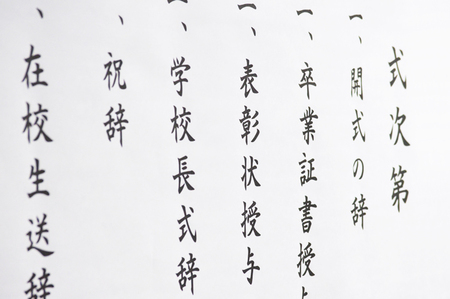 式次第
一、開式の辞
一、卒業証書授与
一、表彰状授与
一、学校長式辞
、祝辞
、在校生送辞